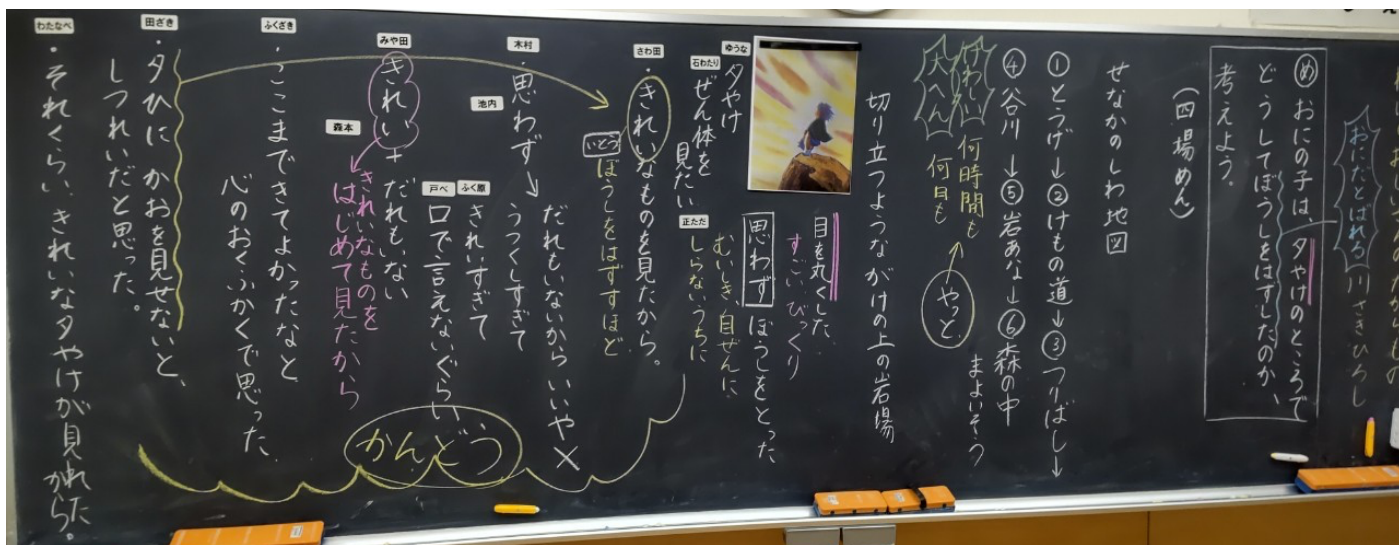 おにだとばれる
川さきひろし
め おにの子は、夕やけのところで
どうしてぼうしをはずしたのか、
考えよう。
(四場めん)
せなかのしわ地図
①とうげ→②けものの道→③つりばし→
④谷川→⑤岩あな→⑥森の中
まよいそう
やっと
けわしい
何時間も
大へん
何日も
切り立つようながけの上の岩場
目を丸くした、
すごいびっくり
思わず ぼうしをとった
むいしき、自ぜんに
正ただ
しらないうちに
ゆうな
夕やけ
石わたり
ぜん体を
見たい
さわ田
・きれいなものを見たから。
いとう
ぼうしをはずすほど
木村
・思わず→だれもいないからいいや×
池内
うつくしすぎて
ふく原
きれいすぎて
戸べ
口で言えないぐらい
かんどう
みや田
きれい+だれもいない
森本
きれいなものを
はじめて見たから
ふくざき
・ここまできてよかったなと
心のおくふかくで思った
田ざき
・夕ひにかおを見せないと、
しつれいだと思った。
わたなべ
・それくらい、きれいな夕やけが見れたから。